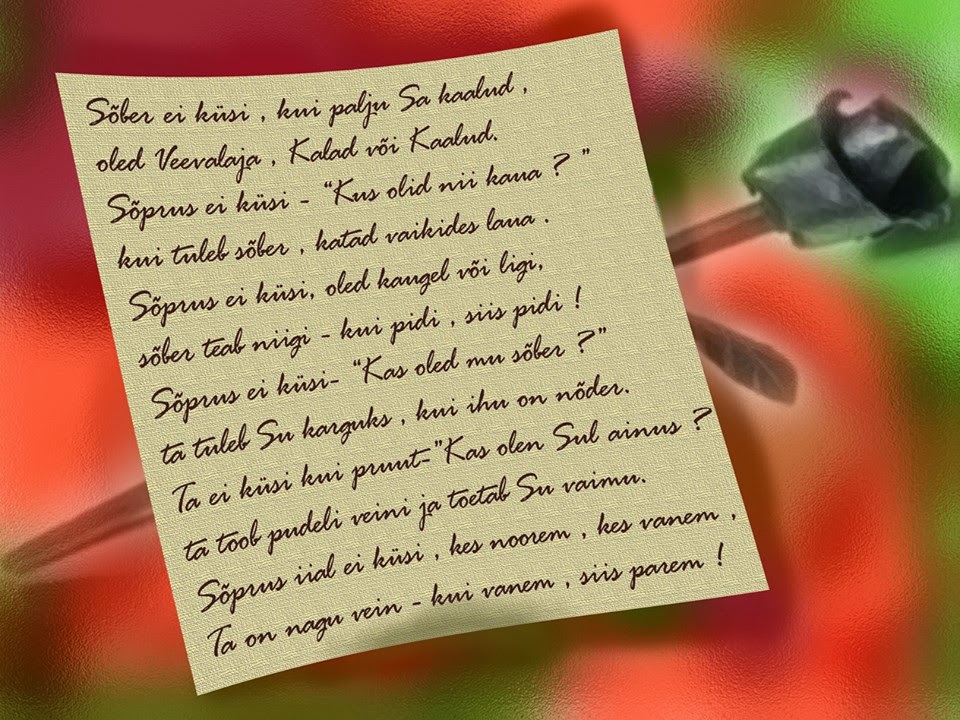 Sõber ei küsi , kui palju Sa kaalud ,
oled Veevalaja , Kalad või Kaalud.
Sõprus ei küsi - “Kus olid nii kaua ? ”
kui tuleb sõber , katad vaikides laua .
Sõprus ei küsi, oled kaugel või ligi,
sõber teab niigi - kui pidi , siis pidi !
Sõprus ei küsi- “Kas oled mu sõber ?”
ta tuleb Su karguks , kui ihu on nõder.
Ta ei küsi kui pruut-”Kas olen Sul ainus ?
ta toob pudeli veini ja toetab Su vaimu.
Sõprus iial ei küsi , kes noorem , kes vanem ,
Ta on nagu vein - kui vanem , siis parem !